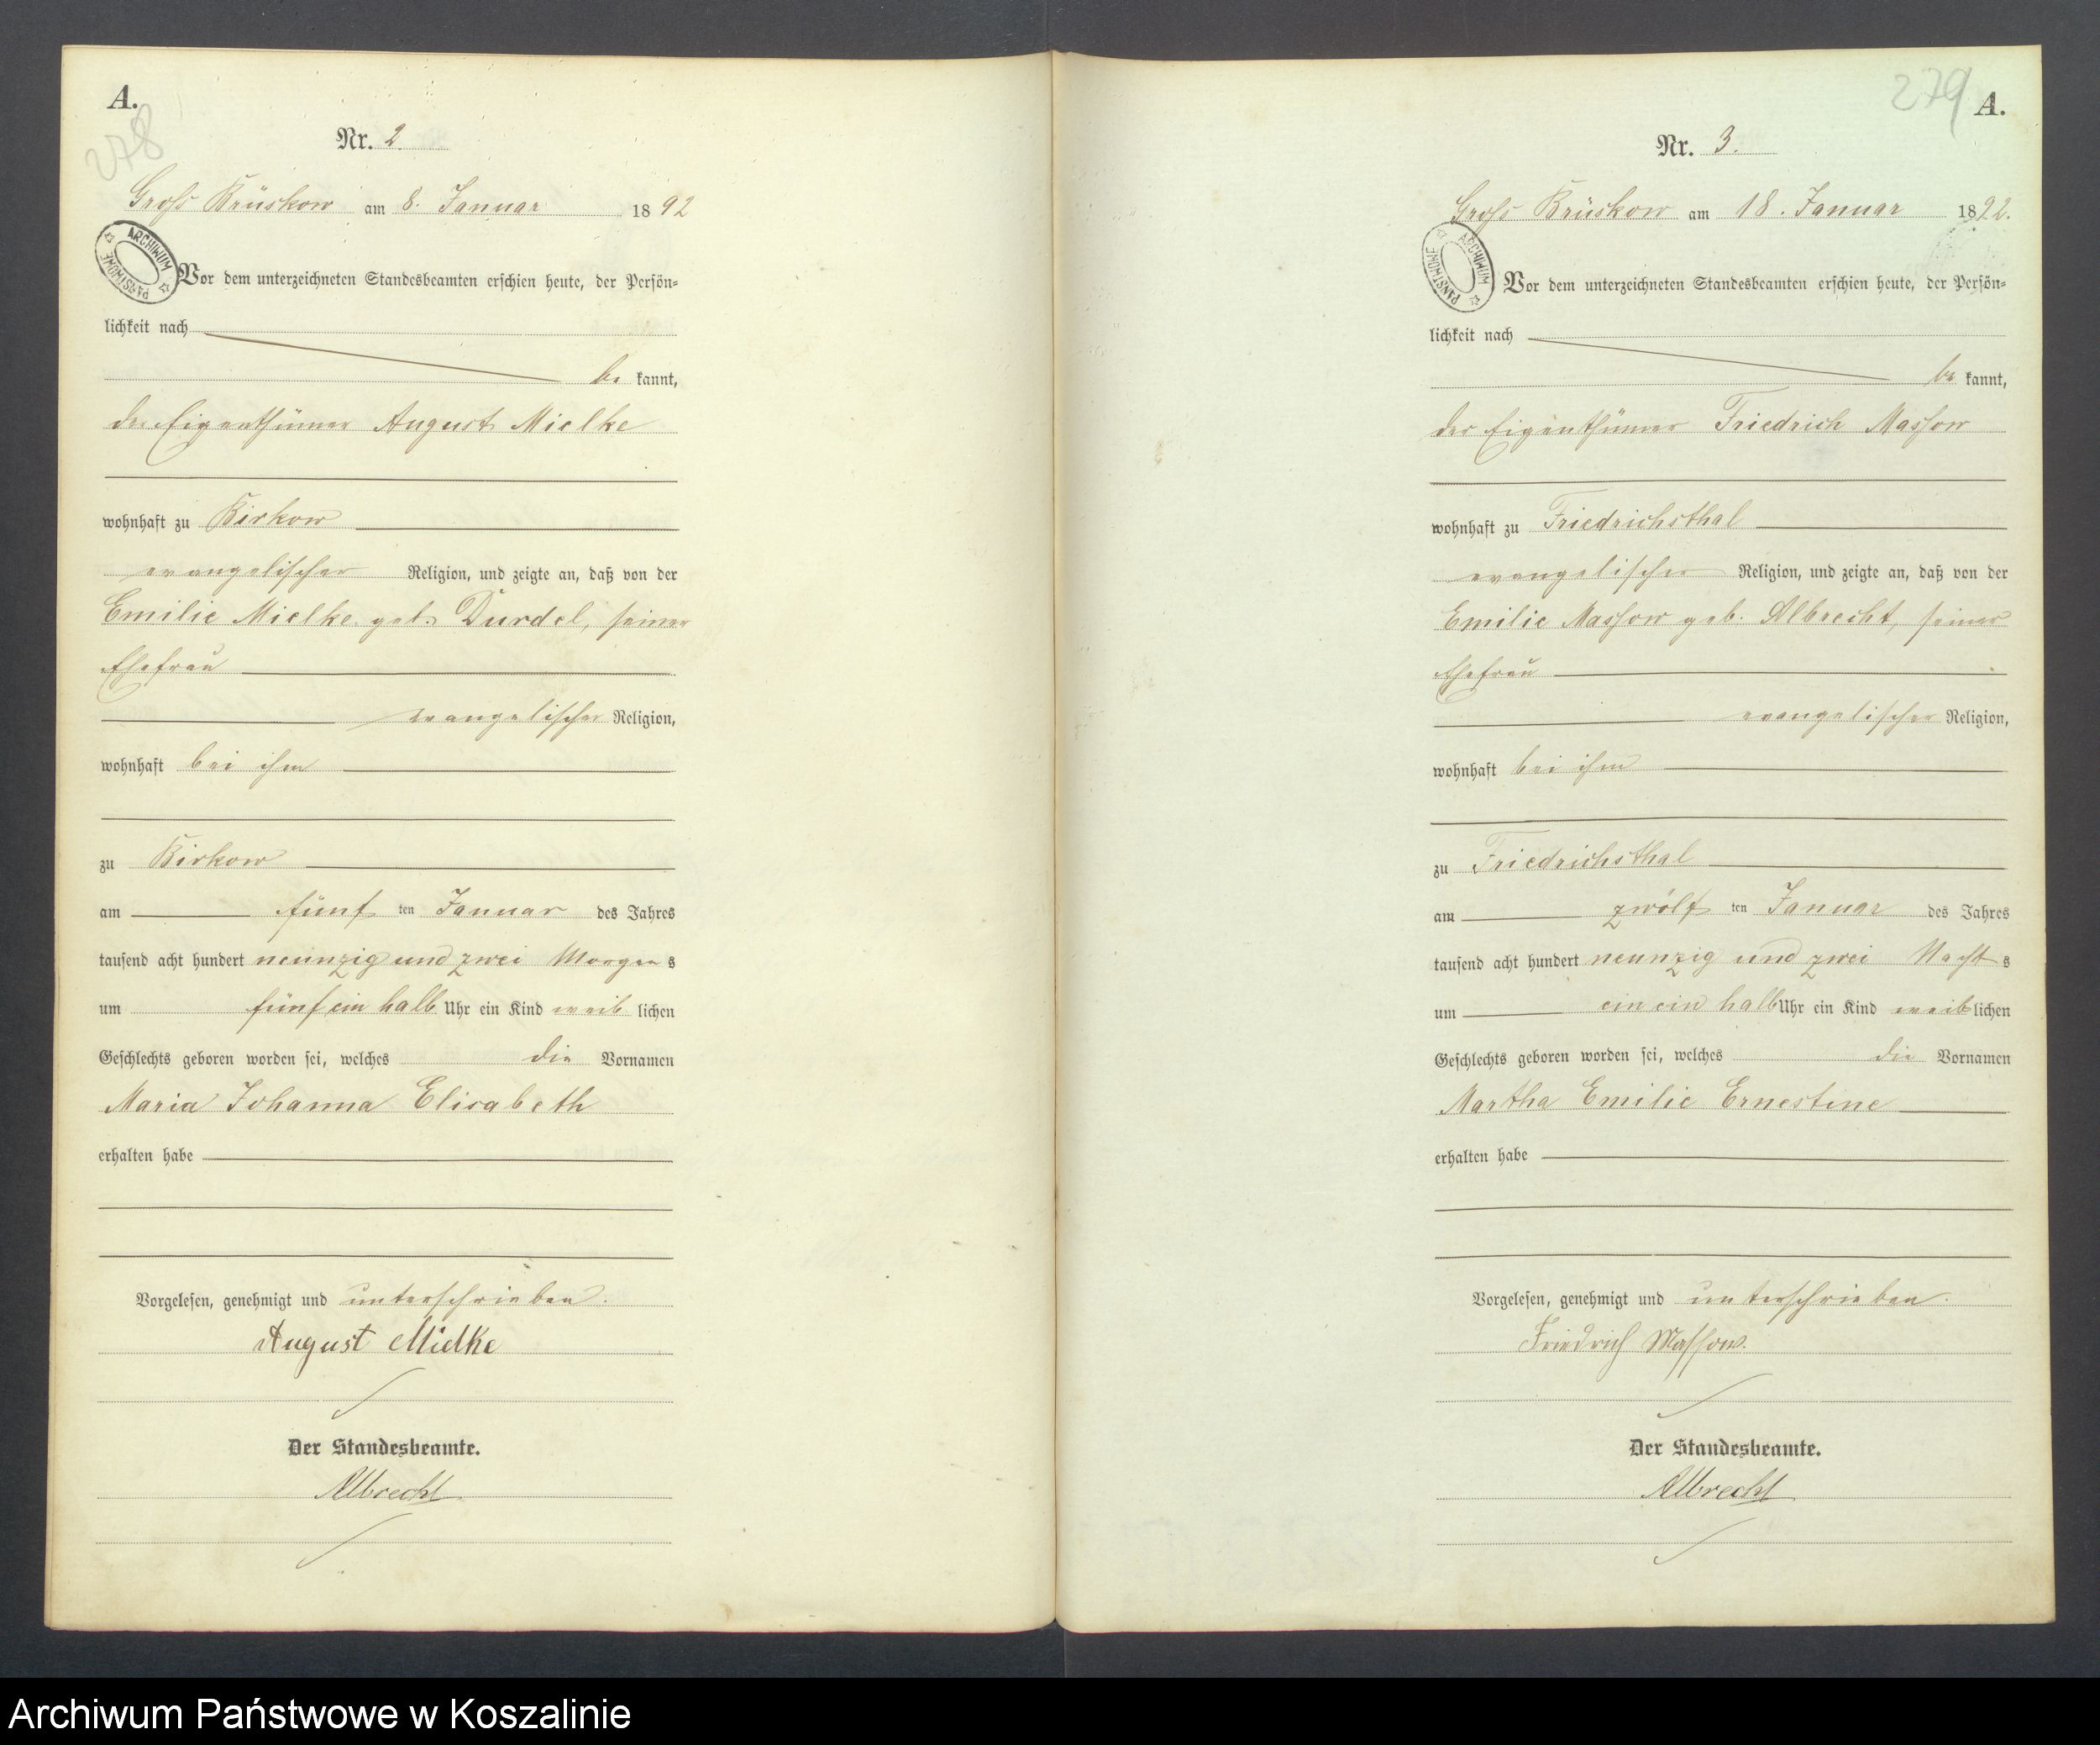 A.
278
Nr. 2.
Groß Brüskow am 8. Januar 1892
ARCHIWUM PAŃSTWOWE
Vor dem unterzeichneten Standesbeamten erschien heute, der Persön-
lichkeit nach
be kannt,
der Eigenthümer August Mielke
wohnhaft zu Birkow
evangelischer Religion, und zeigte an, daß von der
Emilie Mielke geb. Durdel, seiner
Ehefrau
evangelischer Religion,
wohnhaft bei ihm
zu Birkow
am fünf ten Januar des Jahres
tausend acht hundert neunzig und zwei Morgens
um fünf ein halb Uhr ein Kind weib lichen
Geschlechts geboren worden sei, welches die Vornamen
Maria Johanna Elisabeth
erhalten habe
Vorgelesen, genehmigt und unterschrieben.
August Mielke
Der Standesbeamte.
Albrecht
279 A.
Nr. 3.
Groß Brüskow am 18. Januar 1892.
ARCHIWUM PAŃSTWOWE
Vor dem unterzeichneten Standesbeamten erschien heute, der Persön-
lichkeit nach
be kannt,
der Eigenthümer Friedrich Massow
wohnhaft zu Friedrichsthal
evangelischer Religion, und zeigte an, daß von der
Emilie Massow geb. Albrecht, seiner
Ehefrau
evangelischer Religion,
wohnhaft bei ihm
zu Friedrichsthal
am zwölf ten Januar des Jahres
tausend acht hundert neunzig und zwei Nachts
um ein ein halb Uhr ein Kind weiblichen
Geschlechts geboren worden sei, welches die Vornamen
Martha Emilie Ernestine
erhalten habe
Vorgelesen, genehmigt und unterschrieben.
Friedrich Massow.
Der Standesbeamte.
Albrecht
Archiwum Państwowe w Koszalinie